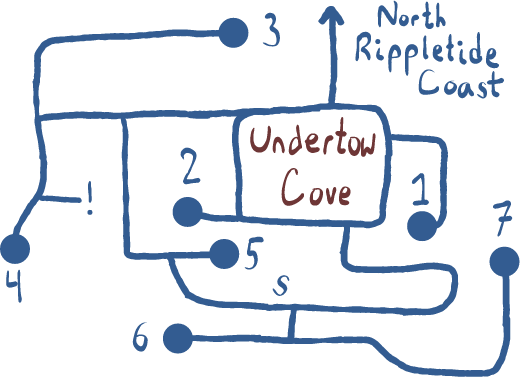 North
Rippletide
Coast
3
Undertow
Cove
2
1
!
7
5
4
s
6